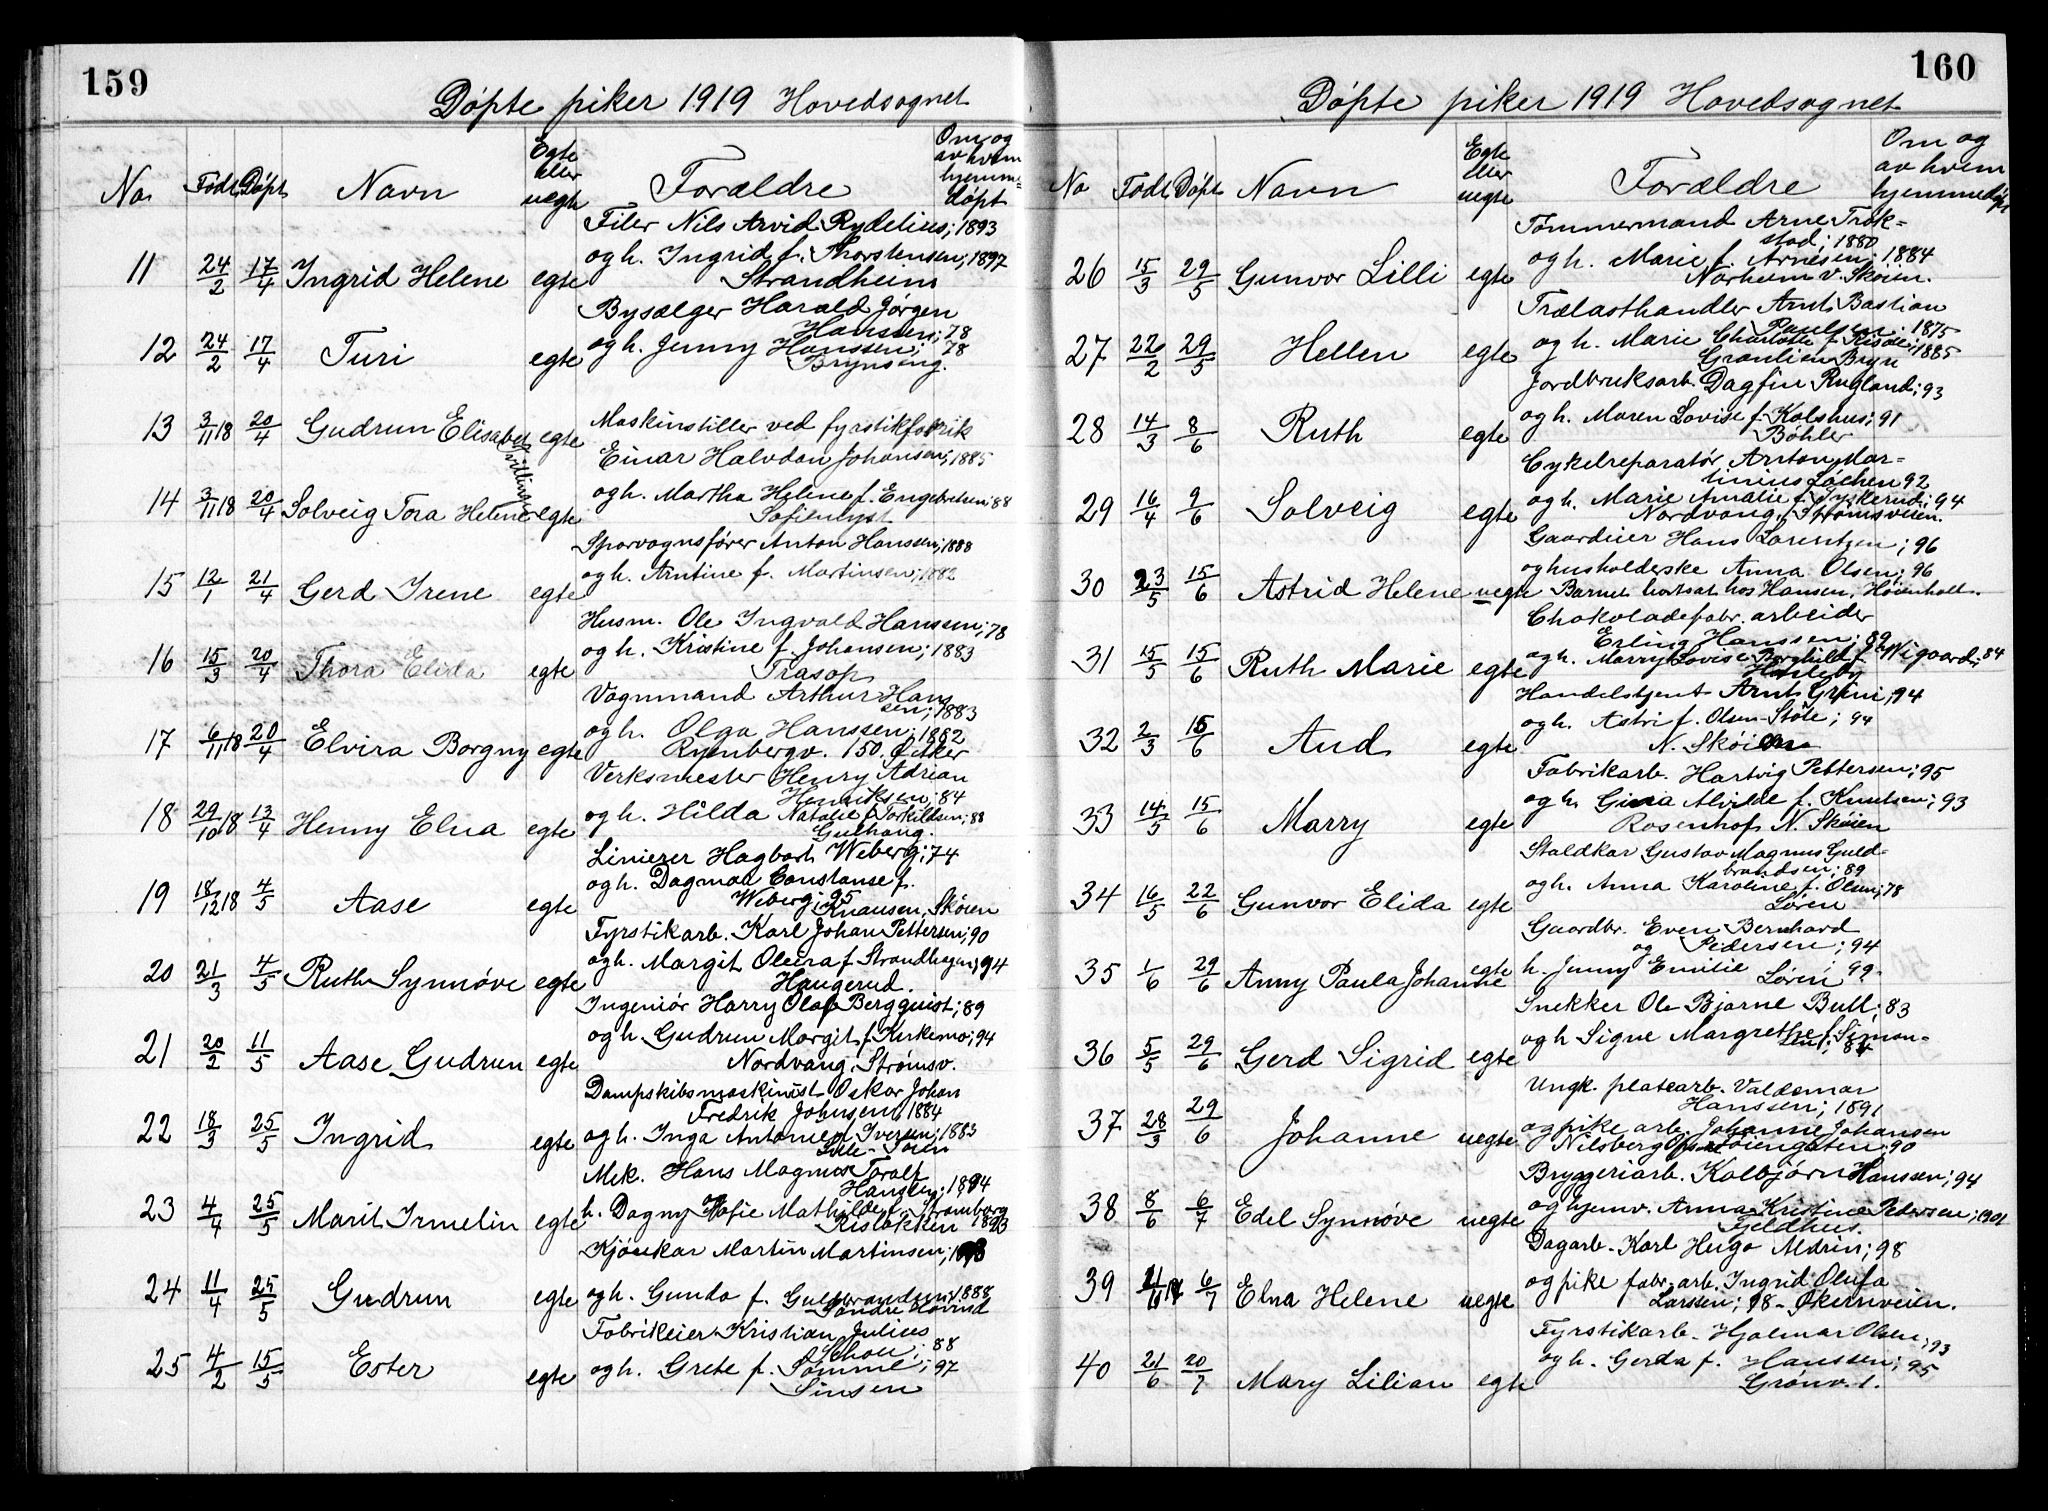 159
Døpte piker 1919 Hovedsognet
No. Født Døpt Navn Egte eller uegte Forældre Om og av hvem hjemmedøpt
Filer Nils Arvid Rydelius; 1893
11 24/2 17/4 Ingrid Helene egte og h. Ingrid f. Thorstensen; 1897
Strandheim
Bysælger Harald Jørgen
Hanssen; 78
12 24/2 17/4 Turi egte og h. Jenny Hanssen; 78
Brynseng.
13 3/11 18 20/4 Gudrun Elisabet egte Maskinstiller ved fyrstikfabrik
Einar Halvdan Johansen; 1885
tvillinger
14 3/11 18 20/4 Solveig Tora Helene egte og h. Martha Helene f. Engebretsen; 88
Sofienlyst
Sporvognsfører Anton Hanssen; 1888
15 12/1 21/4 Gerd Irene egte og h. Arntine f. Martinsen; 1882
Husm. Ole Ingvald Hanssen; 78
16 15/3 20/4 Thora Elida egte og h. Kristine f. Johansen; 1883
Trasop
Vognmand Arthur Hans
sen; 1883
17 6/11 18 20/4 Elvira Borgny egte og h. Olga Hanssen; 1882
Ryenbergv. 150. Østker
Verksmester Henry Adrian
Henriksen; 84
18 29/10 18 13/4 Henny Elna egte og h. Hilda Natalie f. Torkildsen; 88
Gulhaug.
Linierer Hagbart Weberg; 74
19 18/12 18 4/5 Aase egte og h. Dagmar Constanse f.
Weberg; 95
Knausen, Skøien
Fyrstikarb. Karl Johan Pettersen; 90
20 21/3 4/5 Ruth Synnøve egte og h. Margit Oleira f. Strandhagen; 94
Haugerud.
Ingeniør Harry Olaf Bergquist; 89
21 20/2 11/5 Aase Gudrun egte og h. Gudrun Margit f. Kirkemo; 94
Nordvang, Strømsv.
Dampskibsmaskinist Oskar Johan
Fredrik Johnsen, 1884
22 18/3 25/5 Ingrid egte og h. Inga Antonie f. Iversen; 1883
Lille-Tøien
Mek. Hans Magnus Toralf
Hansen; 1894
23 4/4 25/5 Marit Irmelin egte h. Dagny Sofie Mathilde f. Stromborg
Risløkken 1893
Kjørekar Martin Martinsen;
24 11/4 25/5 Gudrun egte og h. Gunda f. Gulbrandsen; 1888
Søndre Hovind
Fabrikeier Kristian Julius
Schou; 88
25 4/2 15/5 Ester egte og h. Grete f. Sømme; 97
Sinsen
160
Døpte piker 1919 Hovedsognet
No Født Døpt Navn Egte eller uegte Forældre Om og av hvem hjemmedøpt
Tømmermand Arne Trøk-
stad; 1880
26 15/3 29/5 Gunvor Lilli egte og h. Marie f. Arnesen; 1884
Norheim v. Skøien.
Trælasthandler Arnt Bastian
Paulsen; 1875
27 22/2 29/5 Hellen egte og h. Marie Charlotte f. Risøe; 1885
Grønlien Bryn
Jordbruksarb. Dagfin Rugland; 93
28 14/3 8/6 Ruth egte og h. Maren Lovise f. Kolshus; 91
Bøhler
Cykelreparatør Anton Mar-
tinius Løchen 92
29 16/4 9/6 Solveig egte og h. Marie Amalie f. Tyskerud; 94
Nordvang, Strømsveien.
Gaardeier Hans Lorentzen; 96
og husholderske Anna Olsen; 96
30 23/5 15/6 Astrid Helene uegte Barnet bortsat hos Hansen, Høienhall.
Chokoladefabr. arbeider
Erling Hanssen; 89
31 15/5 15/6 Ruth Marie egte og h. Marry Lovise Borghild f. Wigaard; 84
Hasleby
Handelstjent Arnt Grini; 94
32 2/3 15/6 Aud egte og h. Astri f. Olsen-Støle; 94
N. Skøien
Fabrikarb. Hartvig Pettersen; 95
33 14/5 15/6 Marry egte og h. Gina Alvilde f. Knutsen; 93
Rosenhof, N. Skøien
Staldkar Gustav Magnus Guld-
brandsen; 89
34 16/5 22/6 Gunvor Elida egte og h. Anna Karoline f. Olsen; 78
Løren
Gaardbr. Even Bernhard
og Pedersen; 94
35 1/6 29/6 Anny Paula Johanne egte h. Jenny Emilie; 99.
Løren
Snekker Ole Bjarne Bull; 83
36 5/5 29/6 Gerd Sigrid egte og h Signe Margrethe f. Simon-
sen; 84
Ungk. platearb. Valdemar
Hanssen; 1891
37 28/3 29/6 Johanne uegte og pike arb. Johanne Johansen
Nilsberg Øvre Tøiengaten; 90
Bryggeriarb. Kolbjørn Hanssen; 94
38 8/6 6/7 Edel Synnøve uegte og hjemv. Anna Kristine Pedersen; 1901
Fjeldhus.
Dagarb. Karl Hugo Aldrin; 98
39 6/7 Elna Helene uegte og pike fabr. arb. Ingrid Olufa
Larssen; 98 - Økernveien.
Fyrstikarb. Hjalmar Olsen; 93
40 21/6 20/7 Mary Lilian egte og h. Gerda f. Hanssen; 95
Grønv. 1.